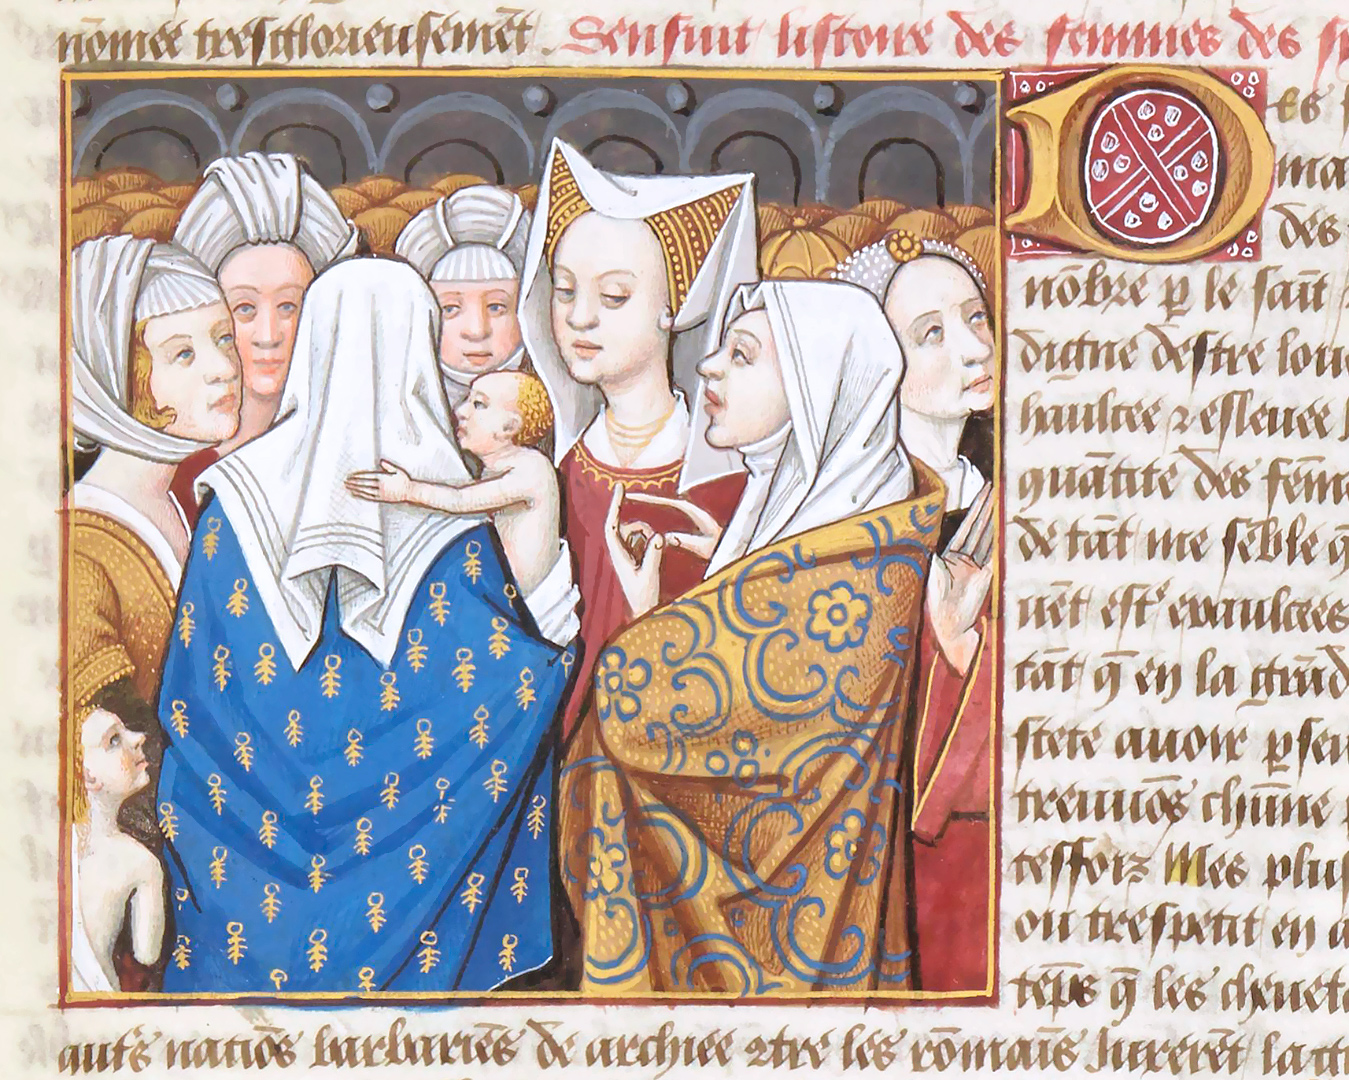 nōmee tresglorieusemēt. Sensuit listoire des femmes des
D
es
ma
des
nōbre p̱ le sait
digne destre loue
haultee ⁊ esleuee
quātite des fēm
de tāt me sēble q̄
uēt estr̄ exaultees
tāt q̄ en la grād
stete auoir p̱ seu
treuuōs
tefforz Mes plus
ou trespetit en a
tēps q̄ les
auts̄ natiōs barbaries de archiee ꝯtre les rōmaīs Jurerēt la